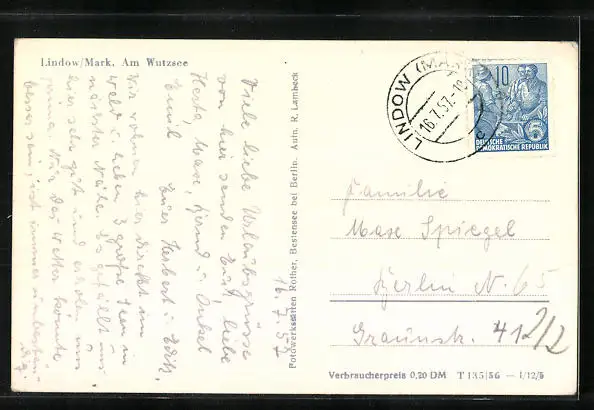 Lindow/Mark. Am Wutzsee
16.7.57
Viele liebe Urlaubsgrüsse
von hier senden Euch, liebe
Herta, Maxe, Bernd u. Onkel
Emil Euer Herbert u. Edith.
Wir wohnen hier direkt am
Wald u. haben 3 große Seen in
nächster Nähe. Es gefällt uns
hier sehr gut und erholen uns
prima. Nur das Wetter könnte
besser sein, ist immer unbestän-
dig.
Fotowerkstätten Rother, Bestensee bei Berlin. Aufn. R. Lambeck
LINDOW (MARK)
16.7.57.-18
c
10
5
DEUTSCHE
DEMOKRATISCHE REPUBLIK
Familie
Maxe Spiegel
Berlin N. 65
Graunstr. 41 2/2
Verbraucherpreis 0,20 DM T 135/56 — 1/12/5